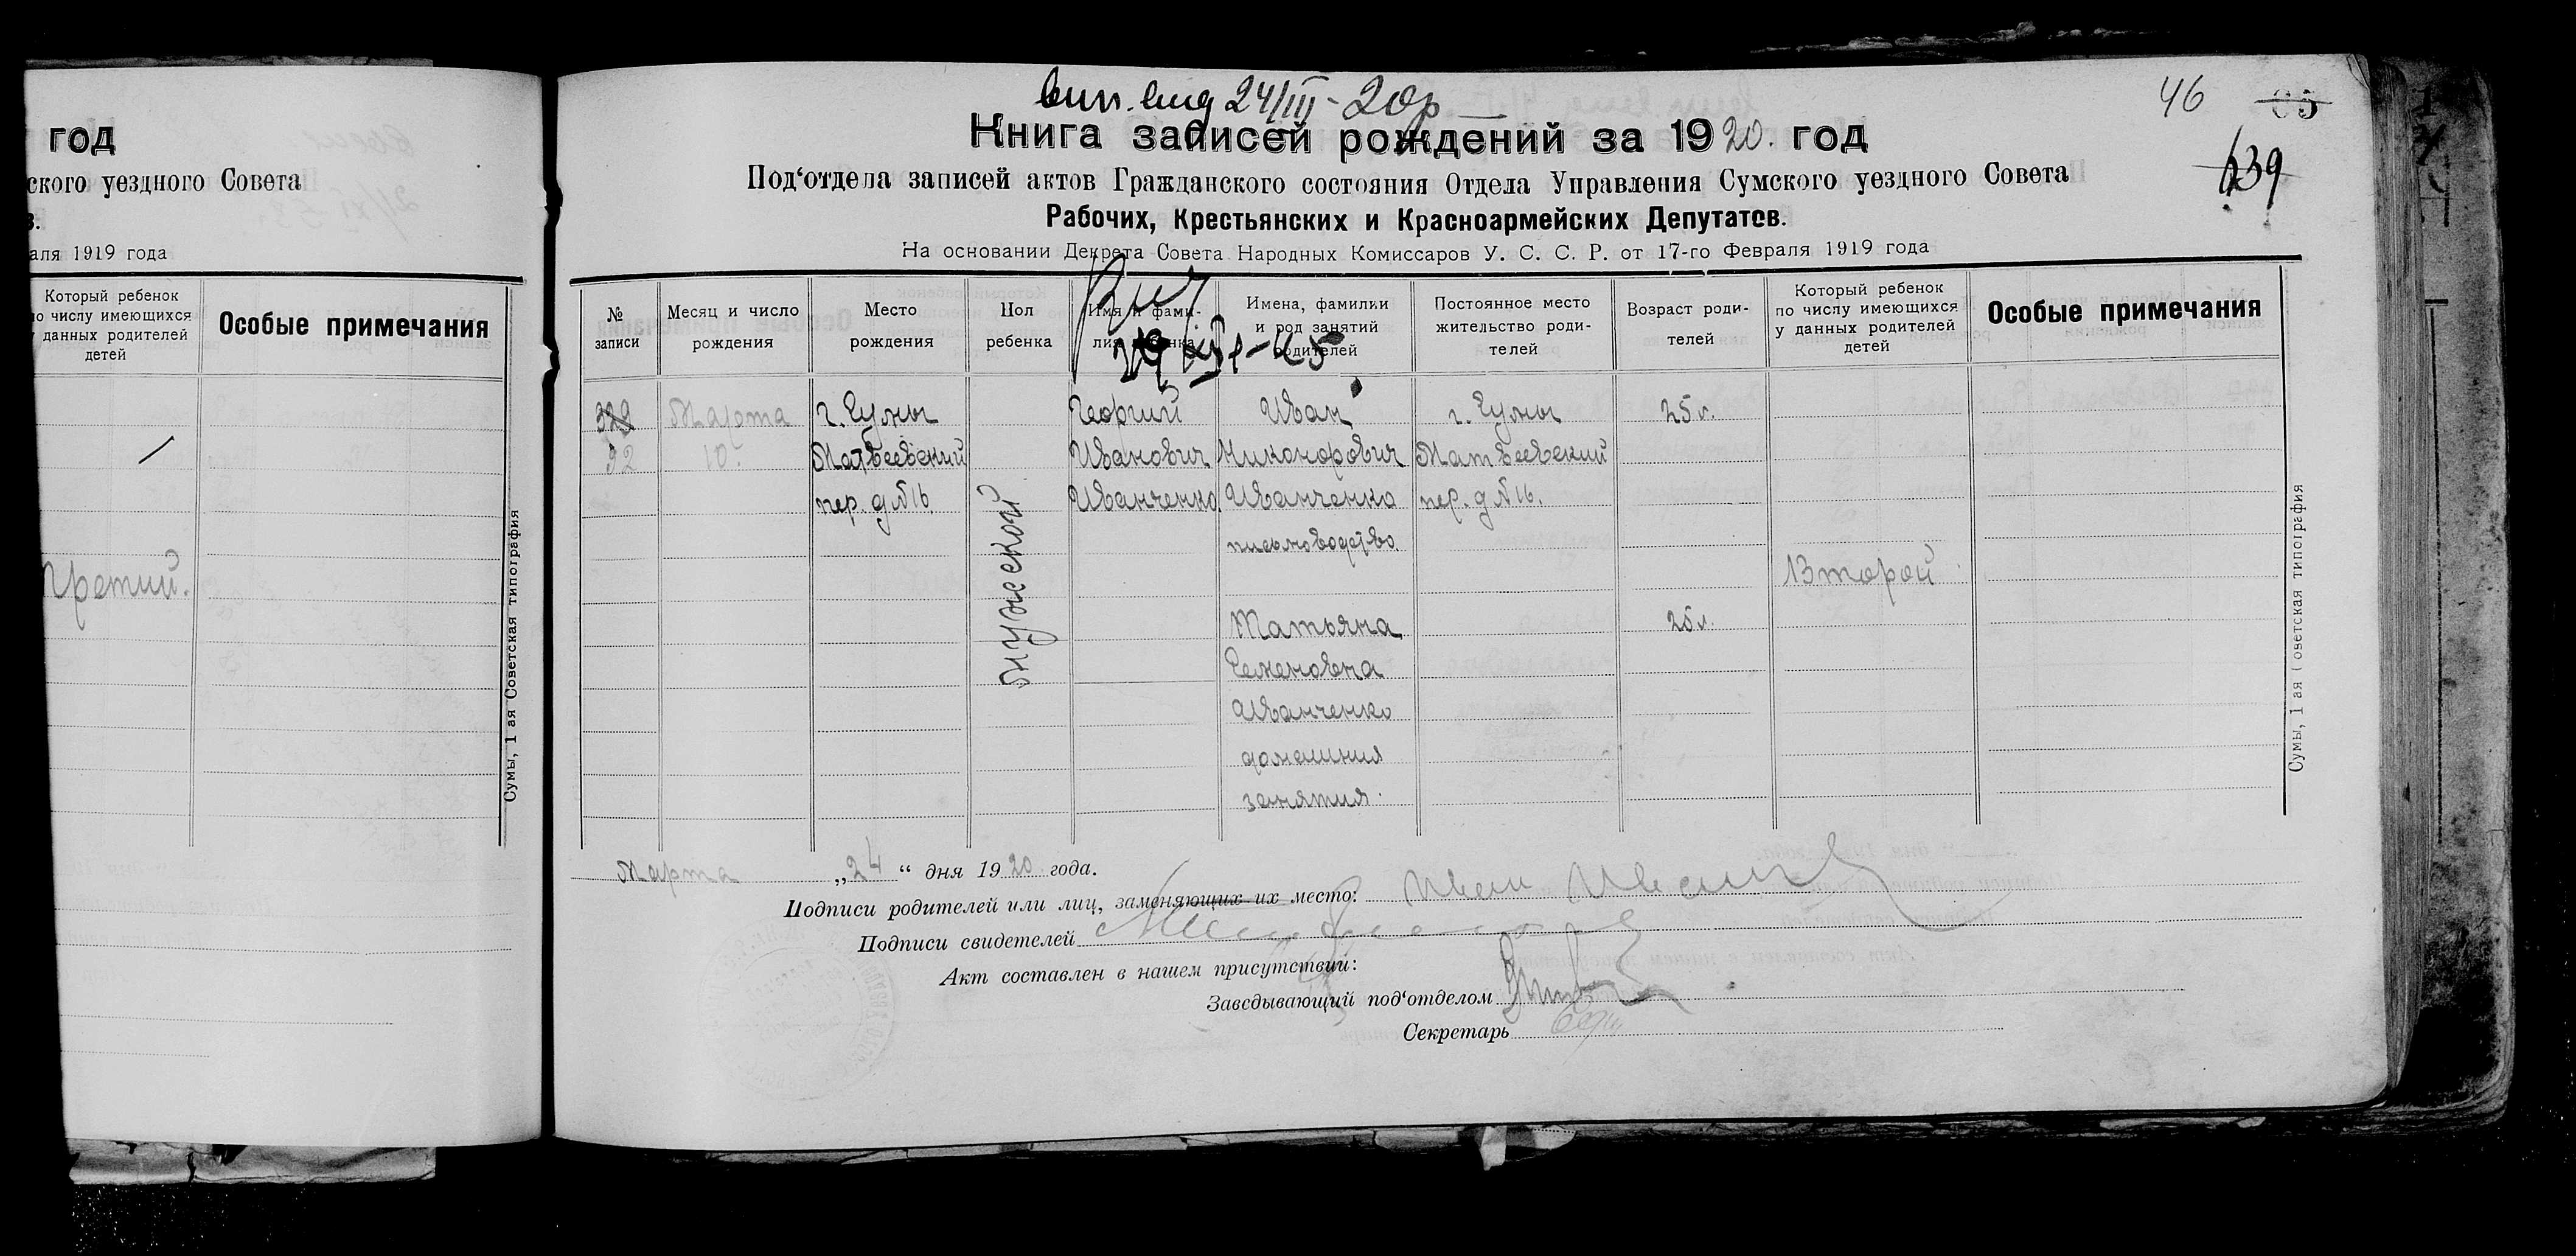 год
ского уездного Совета
в.
аля 1919 года
Который ребенок
по числу имеющихся
у данных родителей
детей
Особые примечания
третий.
Сумы, 1 ая Советская типография
24/III-20р
46
65
639
Книга записей рождений за 1920. год
Под‘отдела записей актов Гражданского состояния Отдела Управления Сумского уездного Совета
Рабочих, Крестьянских и Красноармейских Депутатов.
На основании Декрета Совета Народных Комиссаров У. С. С. Р. от 17-го Февраля 1919 года
№
записи
Месяц и число
рождения
Место
рождения
Пол
ребенка
Имя и фами-
лия ребенка
Имена, фамилии
и род занятий
родителей
Постоянное место
жительство роди-
телей
Возраст роди-
телей
Который ребенок
по числу имеющихся
у данных родителей
детей
Особые примечания
329
92
Марта
10.
г. Сумы
Матвеевский
пер. д №16
мужеской
Георгий
Иванович
Иванченко
Иван
Никонорович
Иванченко
письмоводство.
Татьяна
Семеновна
Иванченко
домашния
занятия.
г. Сумы
Матвеевский
пер. д №16.
25 л.
25 л.
Второй
Сумы, 1 ая Советская типография
Марта „24“ дня 1920 года.
Подписи родителей или лиц, заменяющих их место: Иван
Подписи свидетелей
Акт составлен в нашем присутствии:
Заведывающий под‘отделом
Секретарь